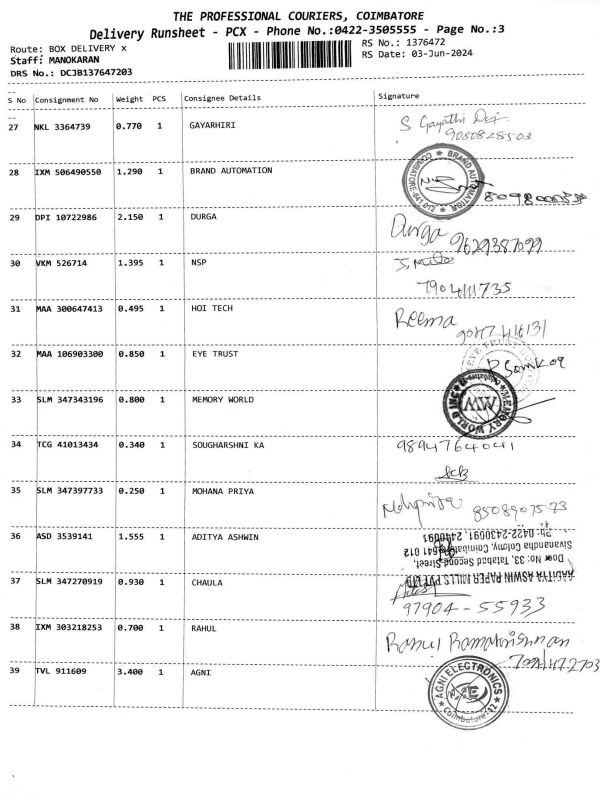 THE PROFESSIONAL COURIERS, COIMBATORE
Delivery Runsheet - PCX - Phone No.:0422-3505555 - Page No.:3
Route: BOX DELIVERY x
RS No.: 1376472
Staff: MANOKARAN
RS Date: 03-Jun-2024
DRS No.: DCJB137647203
S No Consignment No Weight PCS Consignee Details Signature
27 NKL 3364739 0.770 1 GAYARHIRI S Gayathi Dei
9050828503
28 IXM 506490550 1.290 1 BRAND AUTOMATION
★ BRAND AUTOMATION ★ COIMBATORE-641 012
29 DPI 10722986 2.150 1 DURGA Durga 9629387099
30 VKM 526714 1.395 1 NSP
31 MAA 300647413 0.495 1 HOI TECH Reema
32 MAA 106903300 0.850 1 EYE TRUST
EYE TRUST
33 SLM 347343196 0.800 1 MEMORY WORLD
MEMORY WORLD INC MW Coimbatore
34 TCG 41013434 0.340 1 SOUGHARSHNI KA 9894764041
35 SLM 347397733 0.250 1 MOHANA PRIYA 8508907573
36 ASD 3539141 1.555 1 ADITYA ASHWIN
AADITYA ASWIN PAPER MILLS PVT LTD
Door No: 33, Tatabad Second Street,
Sivanandha Colony, Coimbatore-641 012
Ph: 0422-2430091, 2440091
37 SLM 347270919 0.930 1 CHAULA
97904-55933
38 IXM 303218253 0.700 1 RAHUL Rahul Ramakrishnan
39 TVL 911609 3.400 1 AGNI
★ AGNI ELECTRONICS ★ Coimbatore-12 AE